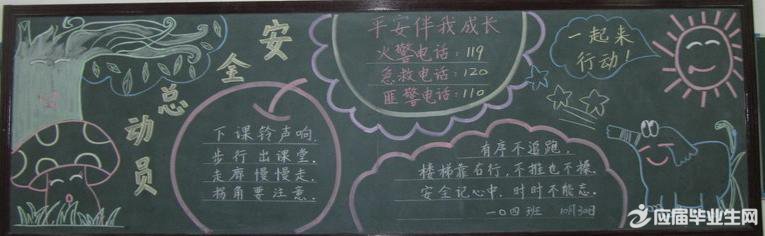 安全总动员
平安伴我成长
火警电话：119
急救电话：120
匪警电话：110
一起来
行动！
下课铃声响，
步行出课堂，
走廊慢慢走，
拐角要注意，
有序不追跑，
楼梯靠右行，不推也不搡，
安全记心中，时时不能忘。
一〇四班 10月30日
应届毕业生网